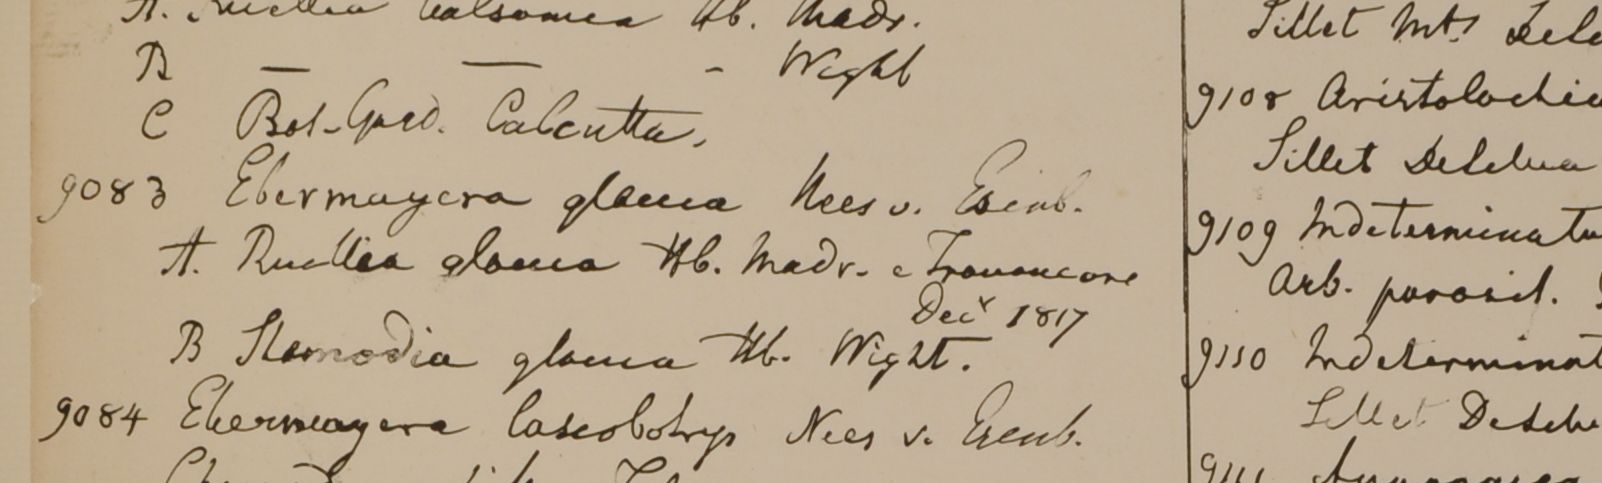 A. Ruellia balsamea Hb. Madr.
B — — - Wight
C Bot. Gard. Calcutta.
9083 Ebermayera glauca Nees v. Esenb.
A. Ruellia glauca Hb. Madr. e Travancore
Decr 1817
B Stemodia glauca Hb. Wight.
9084 Ebermayera lasiobotrys Nees v. Esenb.
Sillet Mts
9108 Aristolochia
Sillet DeSilva
9109 Indeterminata
Arb. parasit.
9110 Indeterminat
Sillet DeSilv
9111